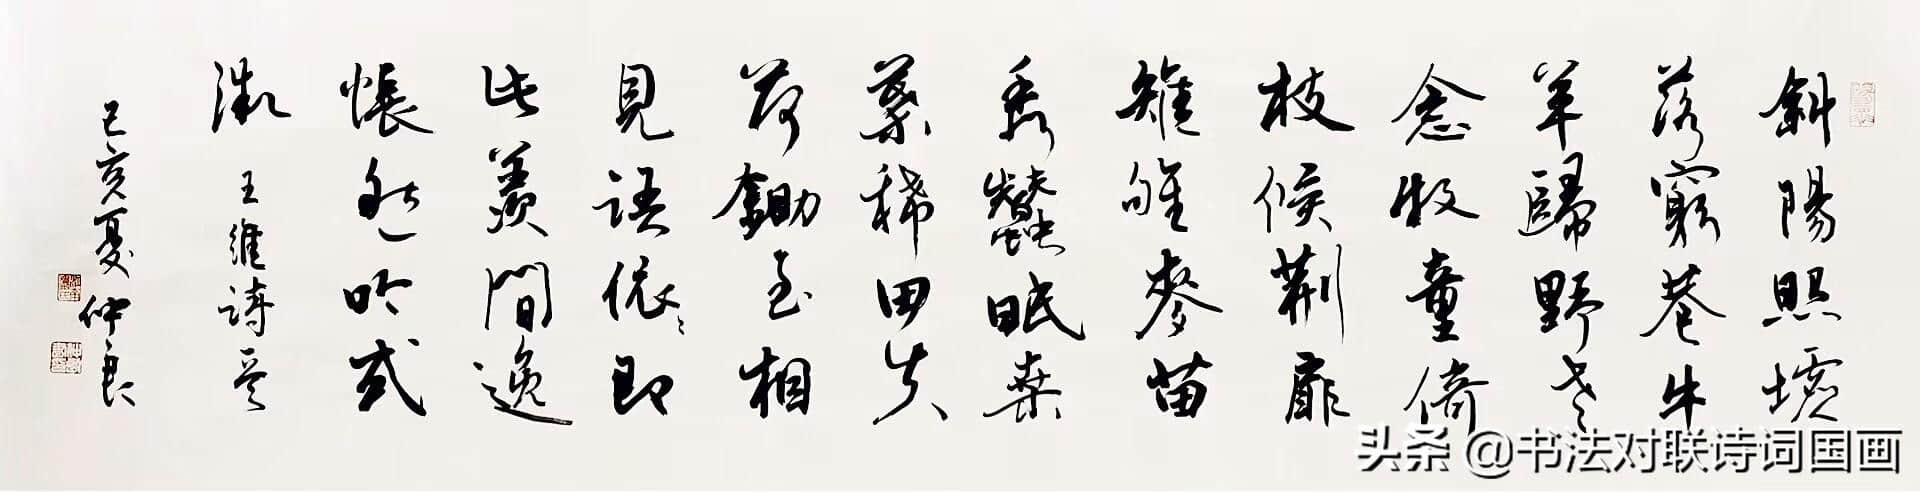 斜陽照墟
落窮巷牛
羊歸野老
念牧童倚
杖候荊扉
雉雊麥苗
秀蠶眠桑
葉稀田夫
荷鋤至相
見語依〻即
此羨間逸
悵然吟式
微 王維詩
己亥夏仲良
头条 @书法对联诗词国画